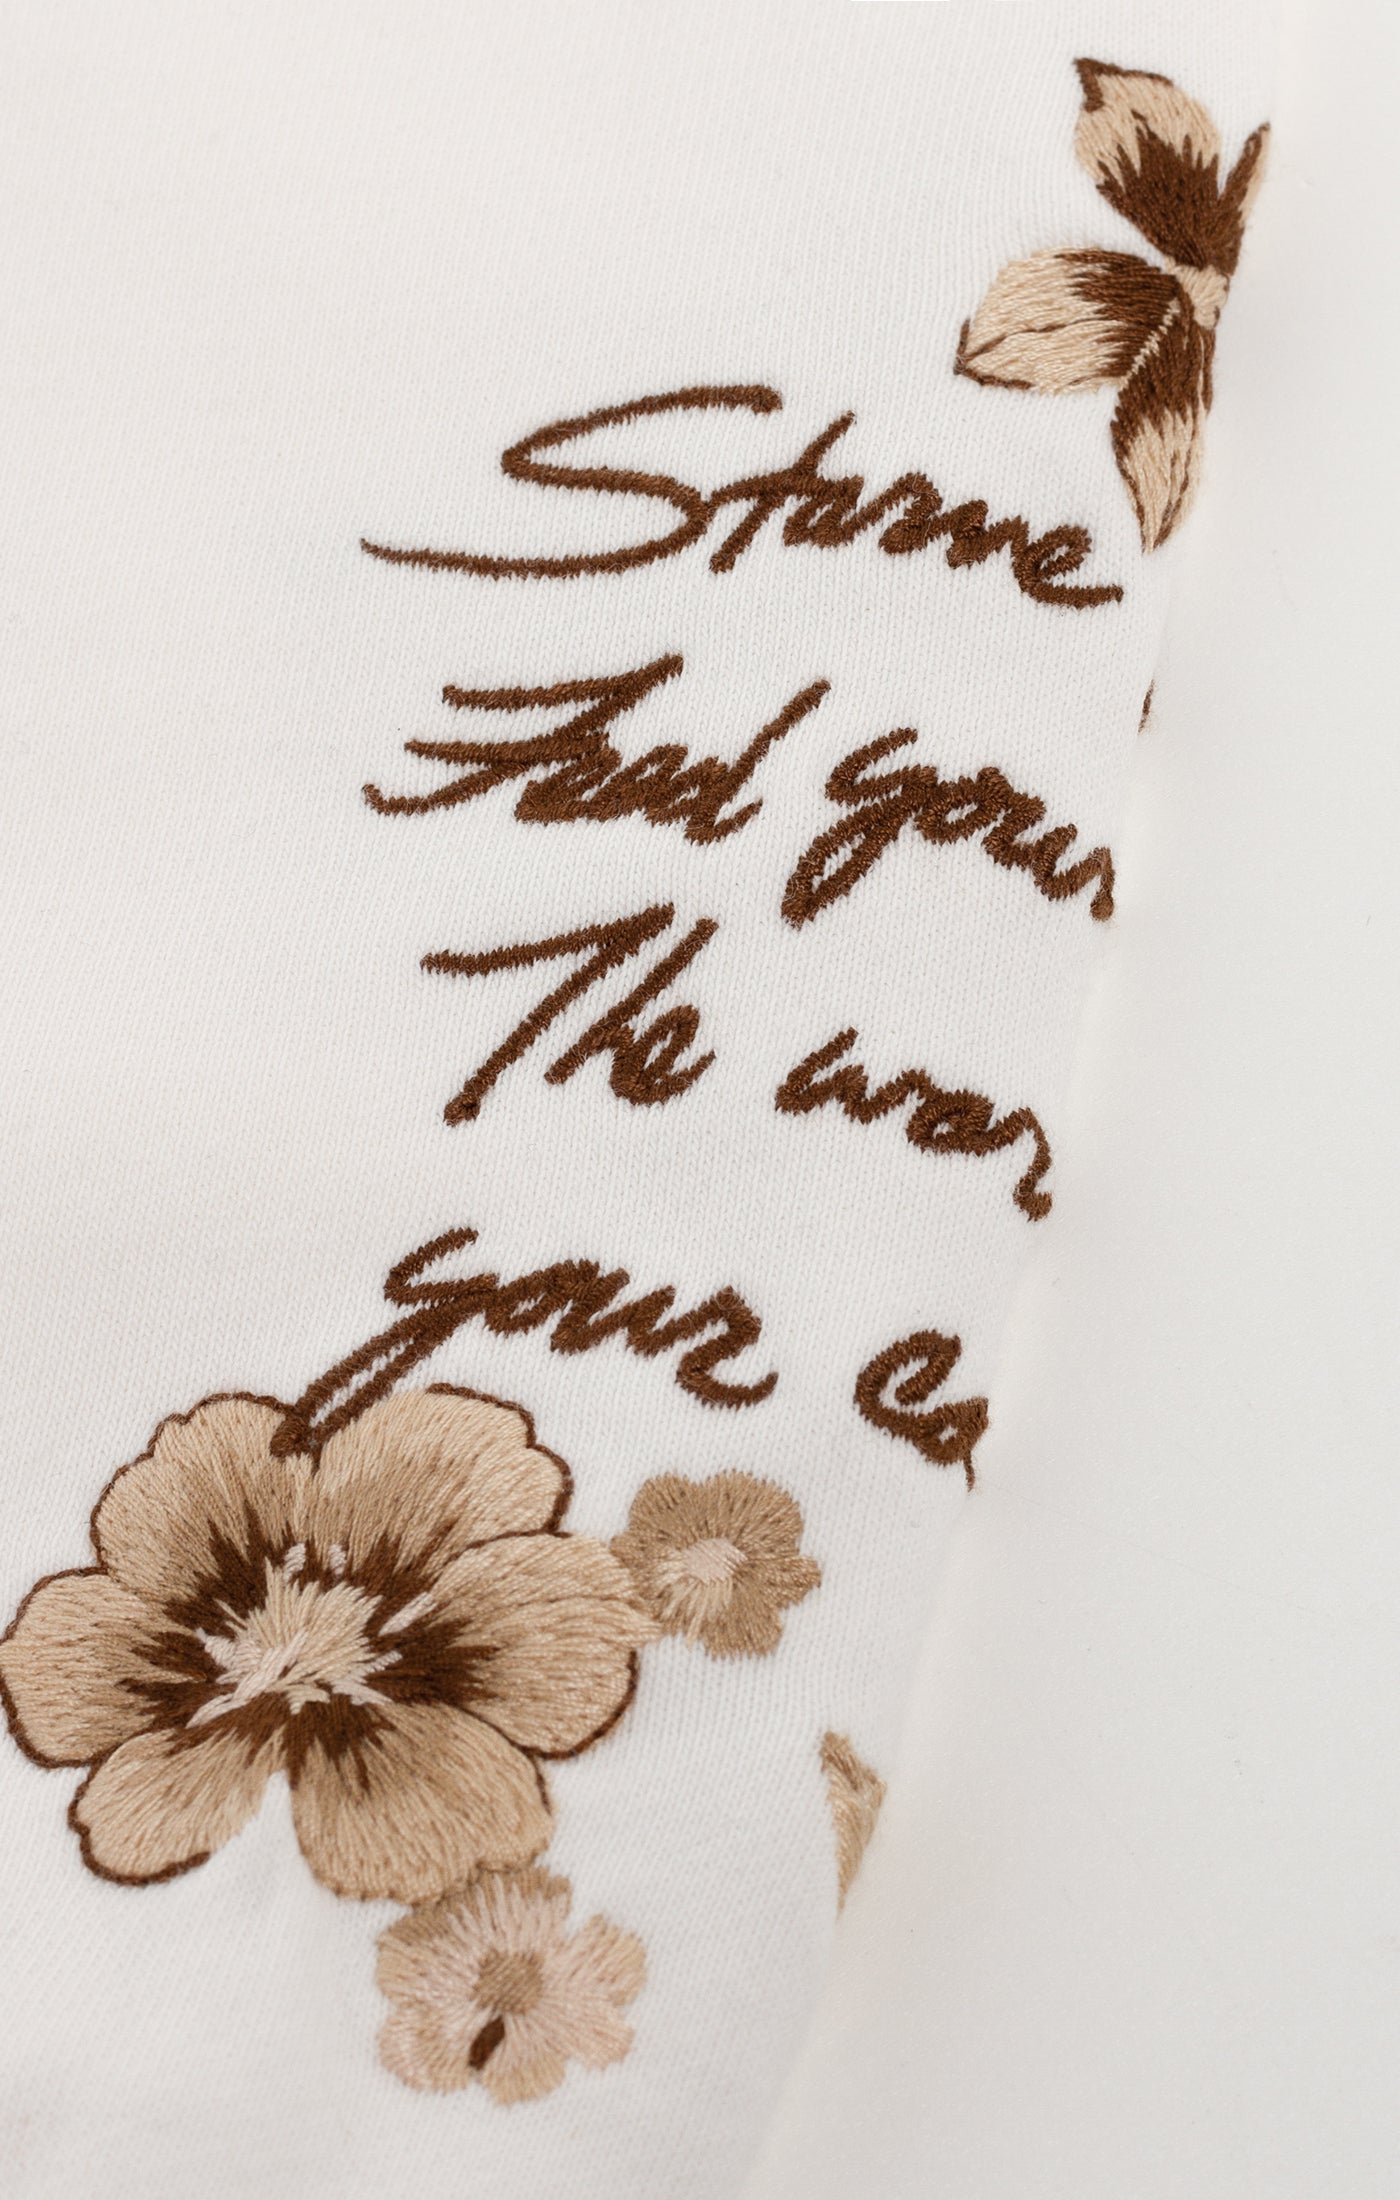 Starve
Feed your
The wor
your co